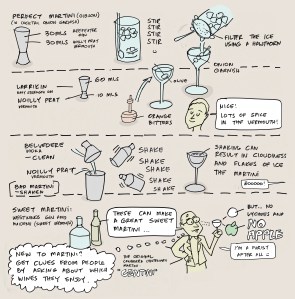 PERFECT MARTINI (GIBSON)
(2 COCKTAIL ONION GARNISH)
30MLS
BEEFEATER
GIN
30MLS
NOILLY PRAT
VERMOUTH
STIR
STIR
STIR
STIR
FILTER THE ICE
USING A HAWTHORN
ONION
GARNISH
LARRIKIN
60 MLS
NOILLY PRAT
VERMOUTH
10 MLS
OLIVE
ORANGE
BITTERS
NICE!
LOTS OF SPICE
IN THE VERMOUTH!
BELVEDERE
VODKA
-CLEAN
NOILLY PRAT
VERMOUTH
BAD MARTINI
-SHAKEN
SHAKE
SHAKE
SHAKE
SHAKE
SHAKE
SHAKING CAN
RESULT IN CLOUDINESS
AND FLAKES OF ICE
THE MARTINI
BOOOOO!
SWEET MARTINI:
THESE CAN MAKE
A GREAT SWEET
MARTINI ...
BUT... NO
LYCHEES AND
NO
APPLE
I'M A PURIST
AFTER ALL
NEW TO MARTINI?
GET CLUES FROM PEOPLE
BY ASKING ABOUT WHICH
WINES THEY ENJOY.
THE ORIGINAL
MARTINI